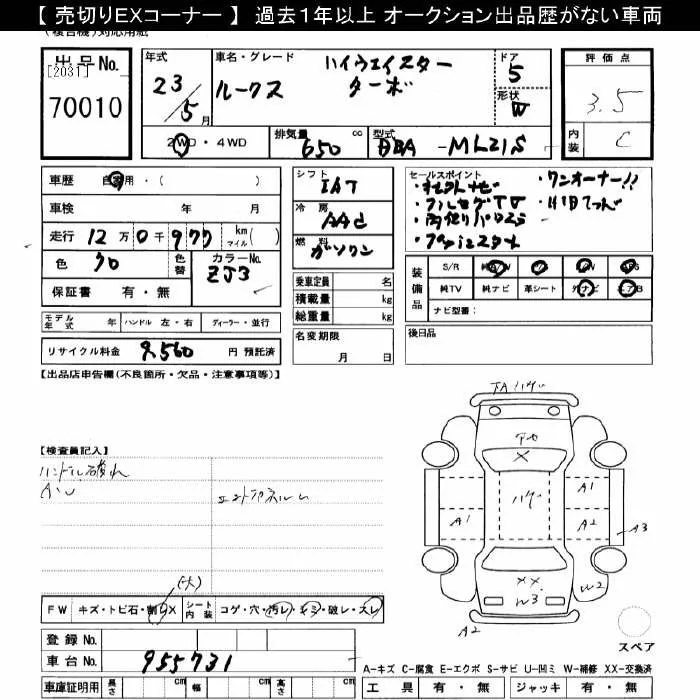 【 売切りEXコーナー 】 過去1年以上 オークション出品歴がない車両
(複合機)対応用紙
出品No.
[2031]
70010
年式
23/5月
車名・グレード
ルークス
ハイウェイスター
ターボ
ドア
5
形状
W
評価点
3.5
内装
C
2WD・4WD
排気量
650 cc
型式
DBA -ML21S
車歴 自家用・( )
車検 年 月
走行 12万0千977 km マイル( )
色 クロ 色替 カラーNo. ZJ3
保証書 有・無
モデル年式 年 ハンドル 左・右 ディーラー・並行
リサイクル料金 9,560 円 預託済
シフト
IAT
冷房
AAC
燃料
ガソリン
乗車定員 名
積載量 kg
総重量 kg
名変期限
月 日
セールスポイント
・ワンオーナー!!
・フルセグTV
・プッシュスタート
装備品
S/R 純A/W P/S P/W ABS
純TV 純ナビ 革シート 外ナビ エアB
ナビ型番:
後日品
【出品店申告欄(不良箇所・欠品・注意事項等)】
【検査員記入】
ハンドル破れ
(大)
FW キズ・トビ石・割レX
シート内装 コゲ・穴・汚レ・キミ・破レ・スレ
登録 No.
車台 No. 955731
車庫証明用 長さ cm 幅 cm 高さ cm
ハゲ
A1
A1
A2
A3
W2
XX
W3
A2
スペア
A-キズ C-腐食 E-エクボ S-サビ U-凹ミ W-補修 XX-交換済
工具 有・無 ジャッキ 有・無